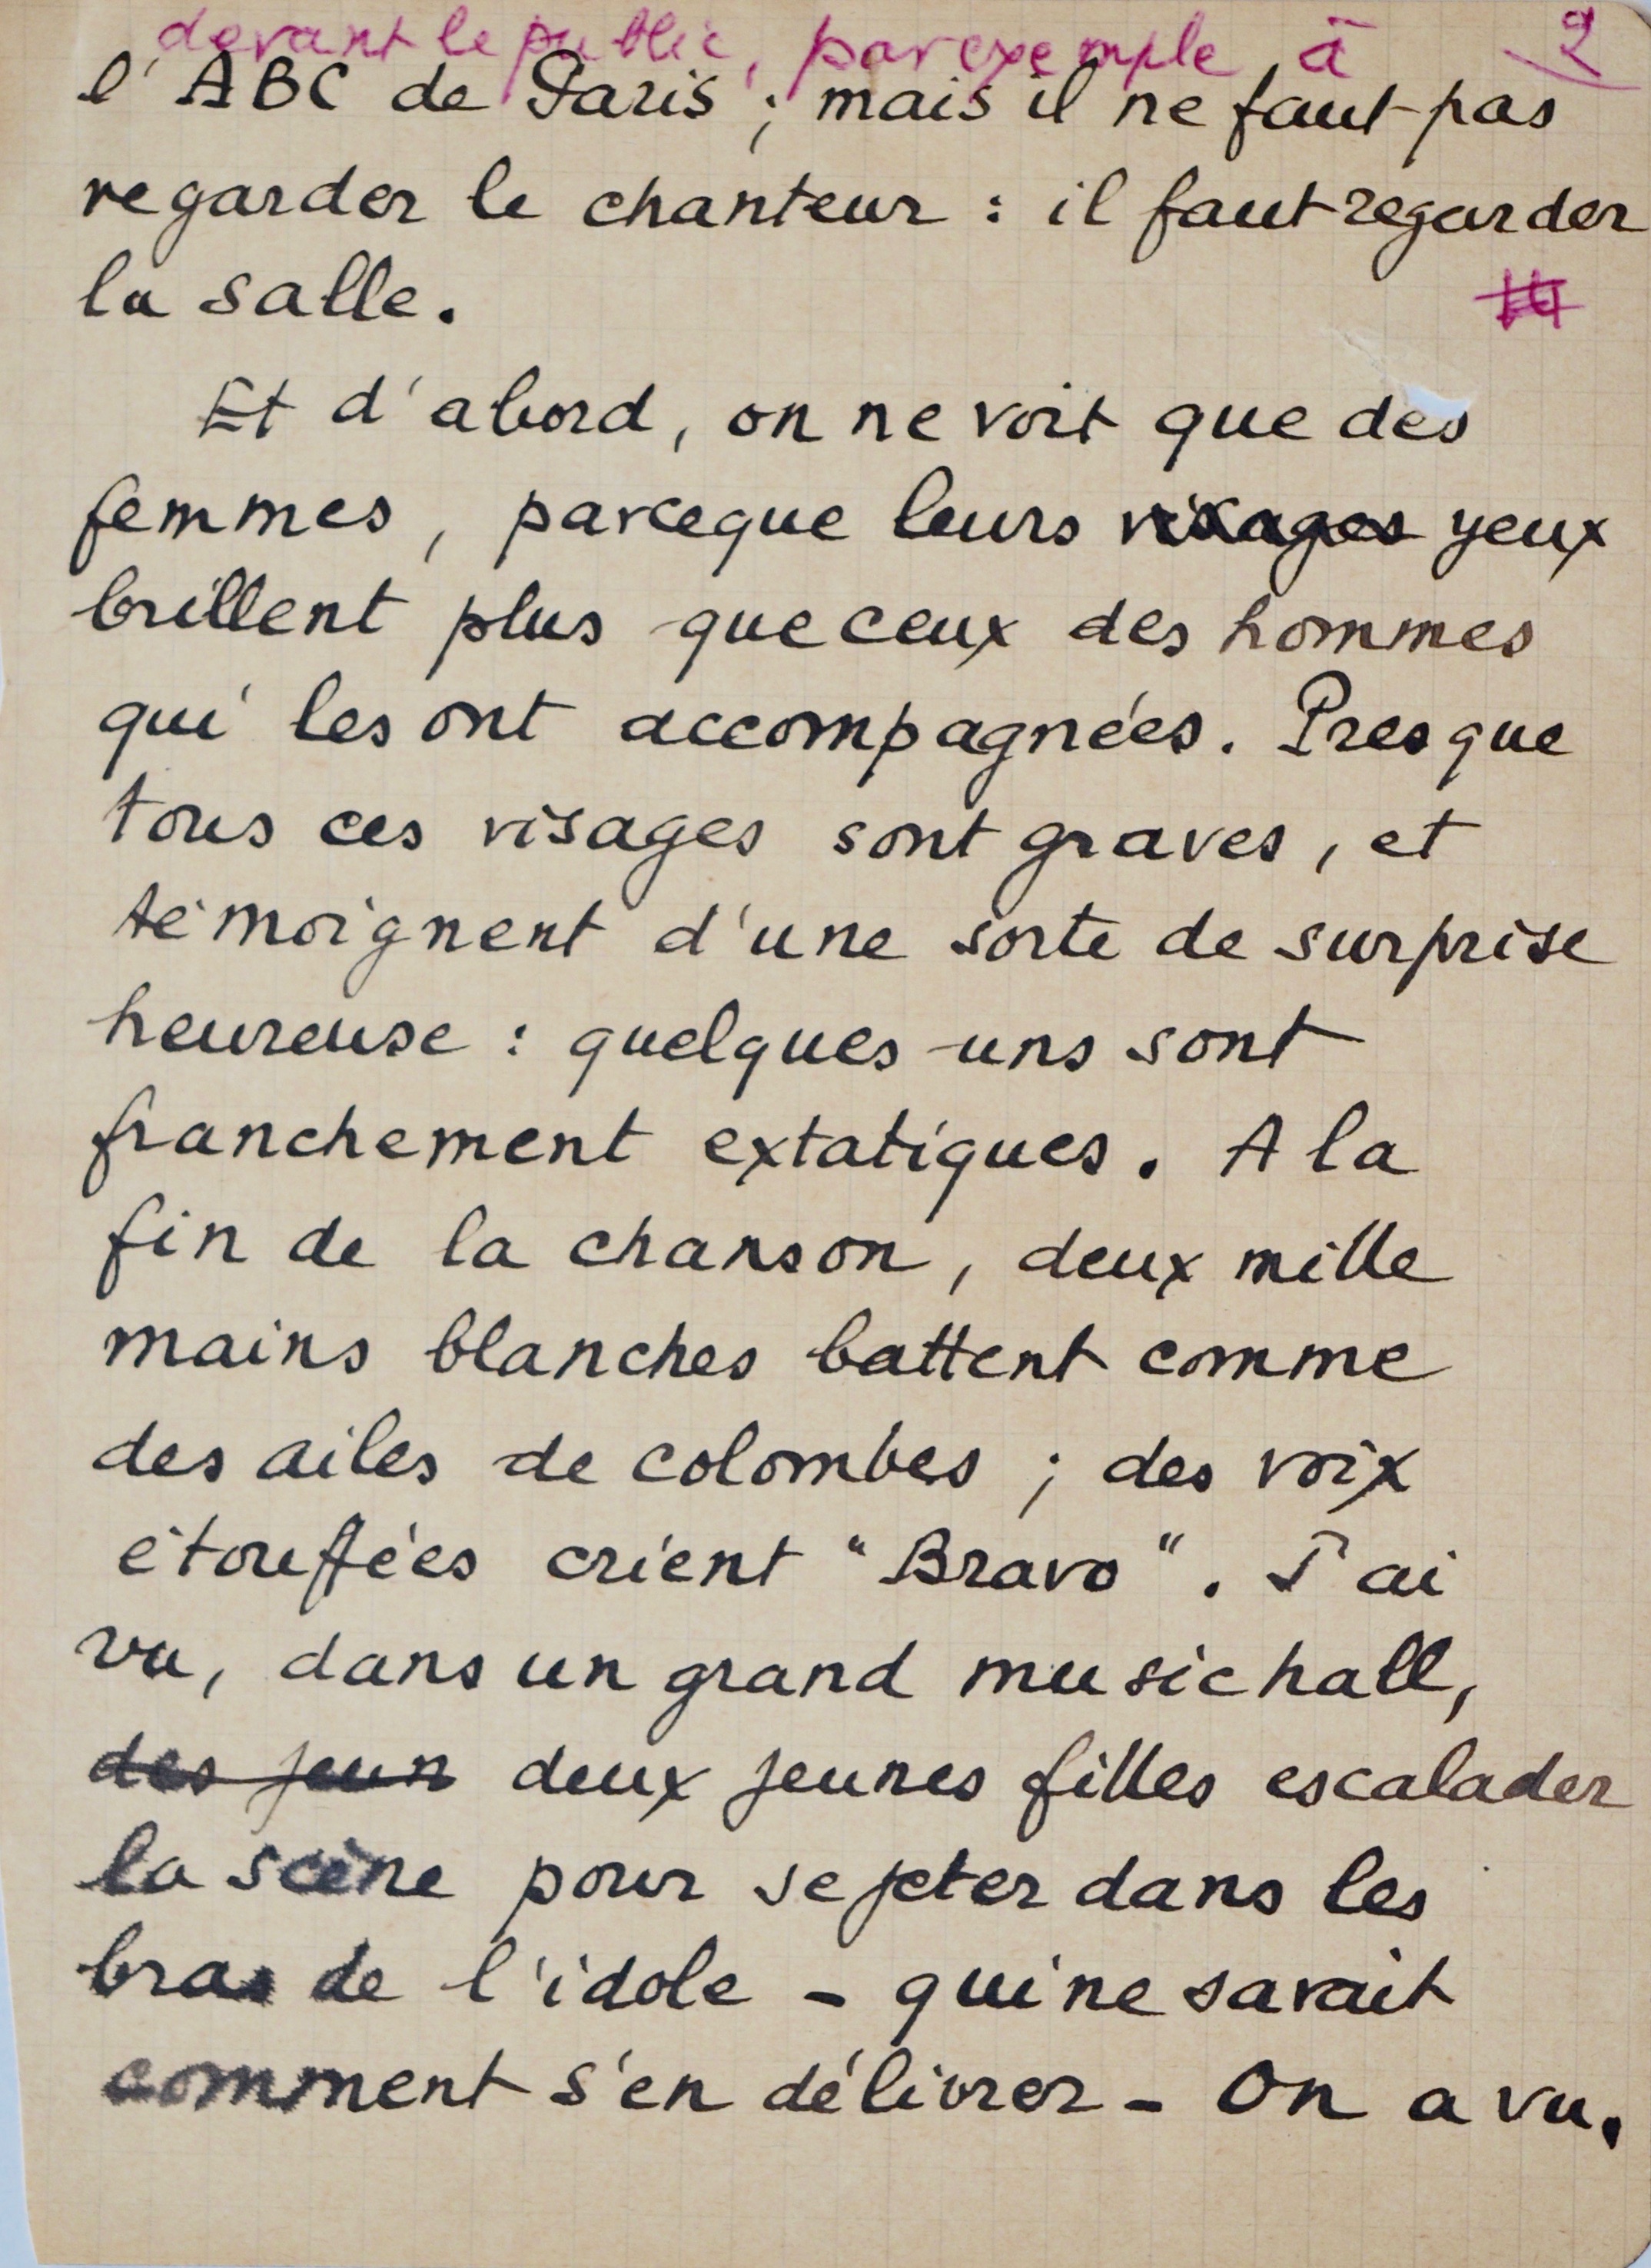 devant le public, par exemple à 2
l'ABC de Paris ; mais il ne faut pas
regarder le chanteur : il faut regarder
la salle.
Et d'abord, on ne voit que des
femmes, parceque leurs visages yeux
brillent plus que ceux des hommes
qui les ont accompagnées. Presque
tous ces visages sont graves, et
témoignent d'une sorte de surprise
heureuse : quelques-uns sont
franchement extatiques. A la
fin de la chanson, deux mille
mains blanches battent comme
des ailes de colombes ; des voix
étouffées crient "Bravo". J'ai
vu, dans un grand music hall,
des jeun deux jeunes filles escalader
la scène pour se jeter dans les
bras de l'idole - qui ne savait
comment s'en délivrer - On a vu,